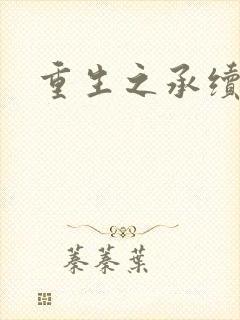 重生之承續
蓁蓁葉